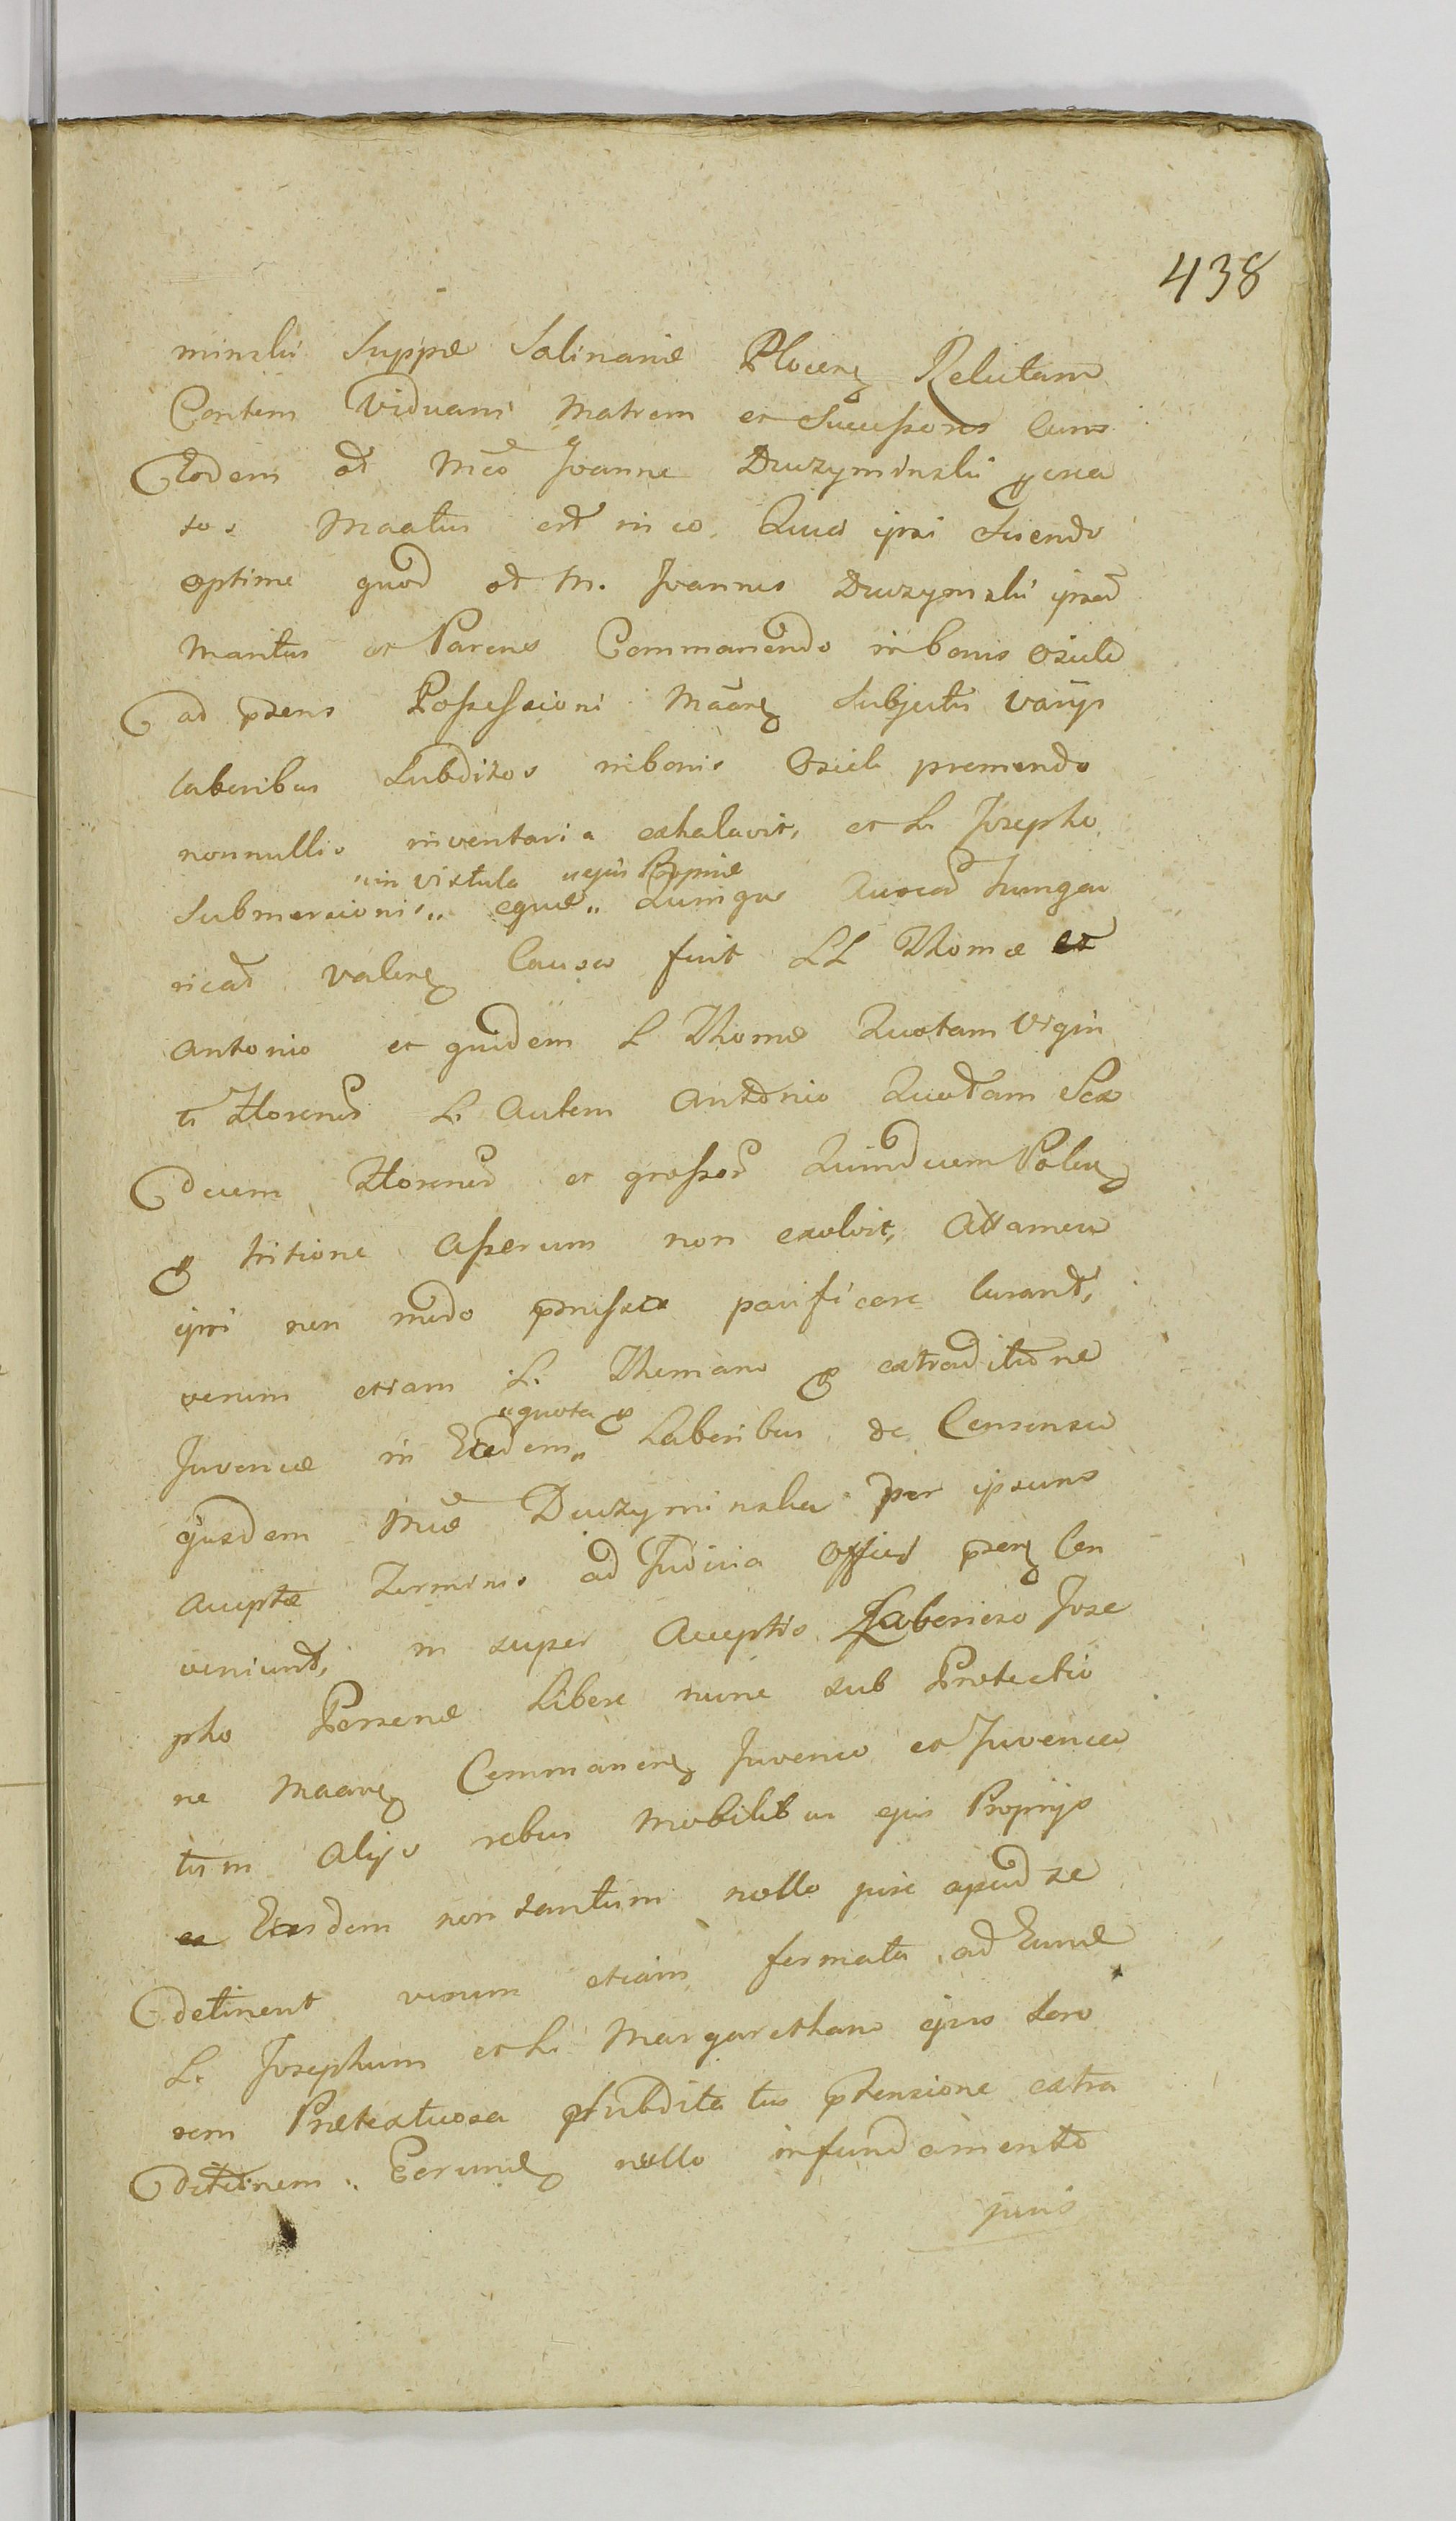 438
minslii Suppæ Salinariæ Plocen Relictam
Contem Viduam Matrem et Successores cum
Eodem od Mco Joanne Duczyminskii procrea
tos Maatus est in eo. Quia ipsi Sciendo
optime quod od M. Joannes Duczymslii ipsor
Maritus et Parens Commanendo in bonis Osiek
ad præns Possessioni Maaren Subjectis varijs
laboribus Subditos in bonis Osiek premendo
nonnullis inventaria exhalavit, et L. Josepho
"in Vistula "ejus Propriæ
Submersionis" equæ" Quinque Aureor hunga
ricor valen Causa fuit LL Thomæ et
Antonio et quidem L Thomæ Quotam Vigin
ti Florenor L. Autem Antonio Quotam Sex
decem Florenor et grossor Quindecim Polon
pro tritione Asserum non exolvit, Attamen
ipsi non modo præmissa pacificare curant,
verum etiam L. Thomam pro extraditione
"quota pro
Juvencæ in Eadem" Laboribus de Consensu
ejusdem Mcæ Duczyminska per ipsum
Acceptæ Terminis ad Judicia Officij præsen Con
veniunt, in super Acceptis Laborioso Jose
pho Personæ Liberæ nunc sub Protectio
ne Maaren Commanen Juvenco et Juvenca
tum Alijs rebus Mobilibus ejus Proprijs
ea Easdem non tantum nullo jure apud se
detinent verum etiam formata ad Eund
L. Josephum et L. Margaretham ejus Soro
rem Prætextuosa Subditatus prætensione extra
ditionem Eorund nullo in fundamento
juris